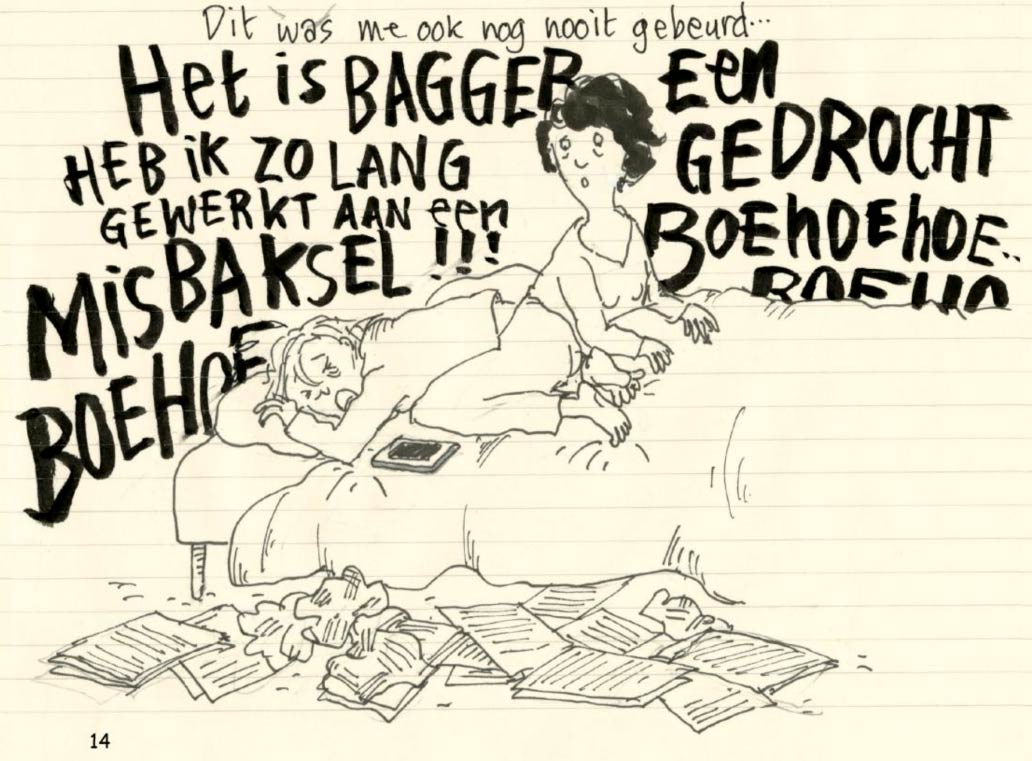 Dit was me ook nog nooit gebeurd...
Het is BAGGER
HEB iK ZO LANG
GEWERKT AAN een
MiSBAKSEL !!!
BOEHOE
Een
GEDROCHT
BOEhOEhOE..
BOEHO
14